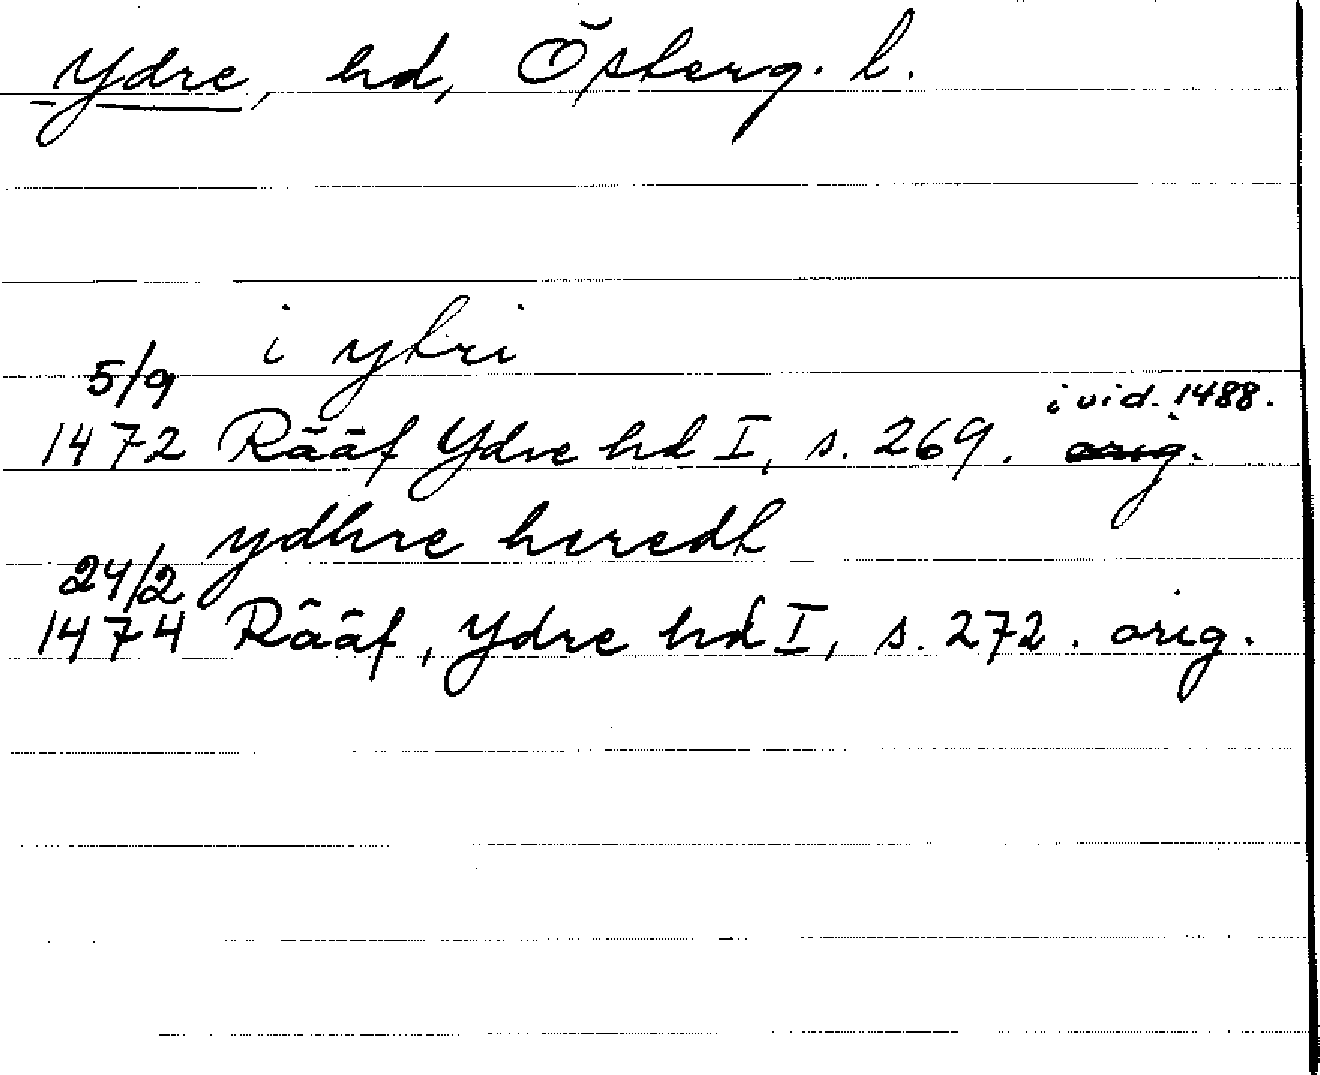 Ydre, hd, Österg. l.
i ytri
5/9
i vid. 1488.
1472 Rääf Ydre hd I, s. 269. orig.
ydhre heredh
24/2
1474 Rääf, Ydre hd I, s. 272. orig.